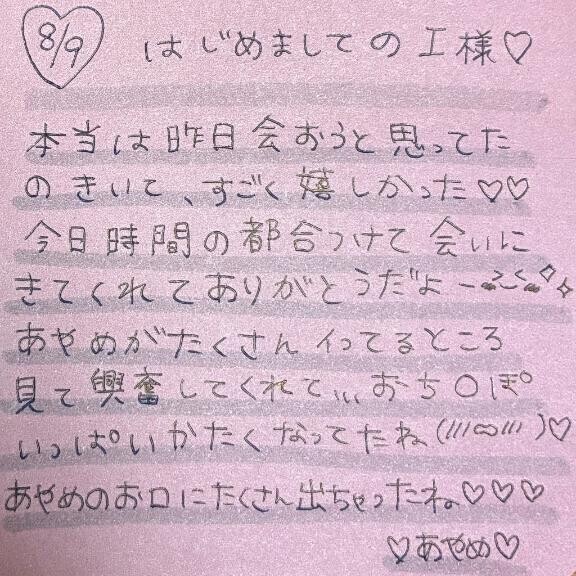 8/9
はじめましてのI様♡
本当は昨日会おうと思ってた
のきいて、すごく嬉しかった♡♡
今日時間の都合つけて会いに
きてくれてありがとうだよー
あやめがたくさんイってるところ
見て興奮してくれて、、、おち○ぽ
いっぱいかたくなってたね(///∞///)♡
あやめのお口にたくさん出ちゃったね♡♡♡
♡あやめ♡